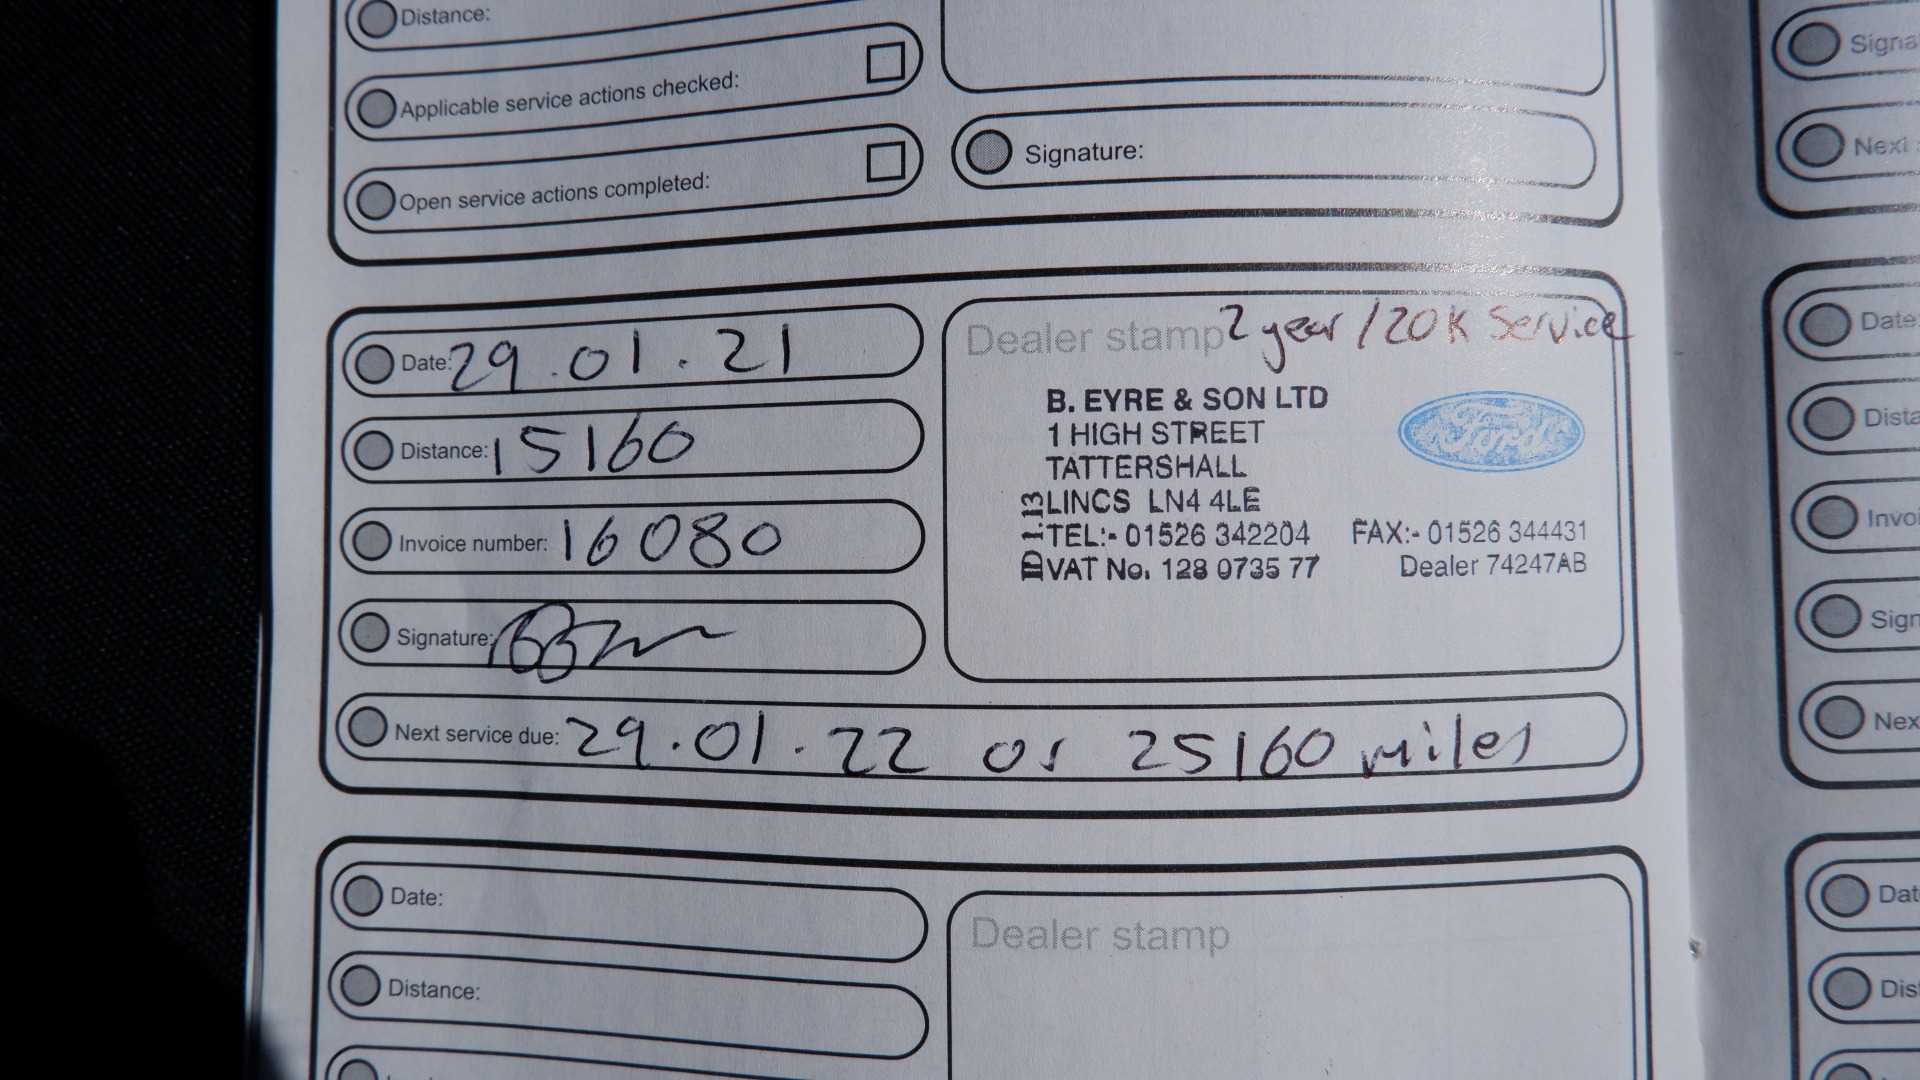 Distance:
Applicable service actions checked:
Open service actions completed:
Signature:
Date: 29.01.21
Distance: 15160
Invoice number: 16080
Signature:
Next service due: 29.01.22 or 25160 miles
Dealer stamp 2 year / 20K Service
B. EYRE & SON LTD
1 HIGH STREET
TATTERSHALL
LINCS LN4 4LE
TEL:- 01526 342204 FAX:- 01526 344431
VAT No. 128 0735 77 Dealer 74247AB
Ford
Date:
Distance:
Dealer stamp
Date
Sign